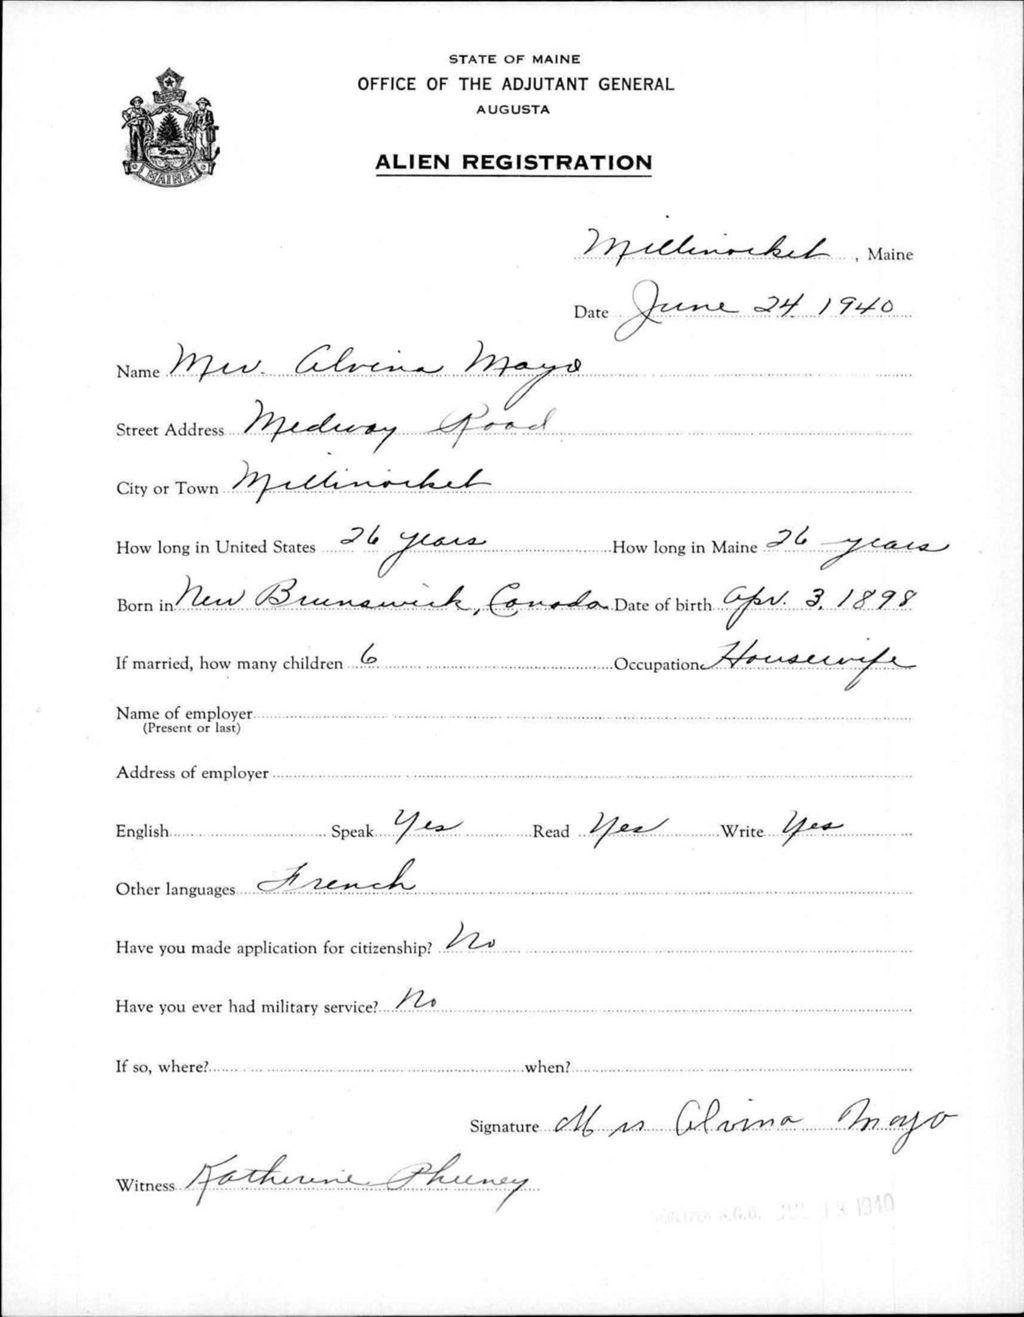 STATE OF MAINE
OFFICE OF THE ADJUTANT GENERAL
AUGUSTA
MAINE
ALIEN REGISTRATION
Millinocket, Maine
Date June 24, 1940
Name Mrs. Alvina Mayo
Street Address Medway Road
City or Town Millinocket
How long in United States 26 years How long in Maine 26 years
Born in New Brunswick, Canada Date of birth Apr. 3, 1898
If married, how many children 6 Occupation Housewife
Name of employer
(Present or last)
Address of employer
English Speak Yes Read Yes Write Yes
Other languages French
Have you made application for citizenship? No
Have you ever had military service? No
If so, where? when?
Signature Mrs Alvina Mayo
Witness Katherine Pheeney
A.G.O. JUL 13 1940